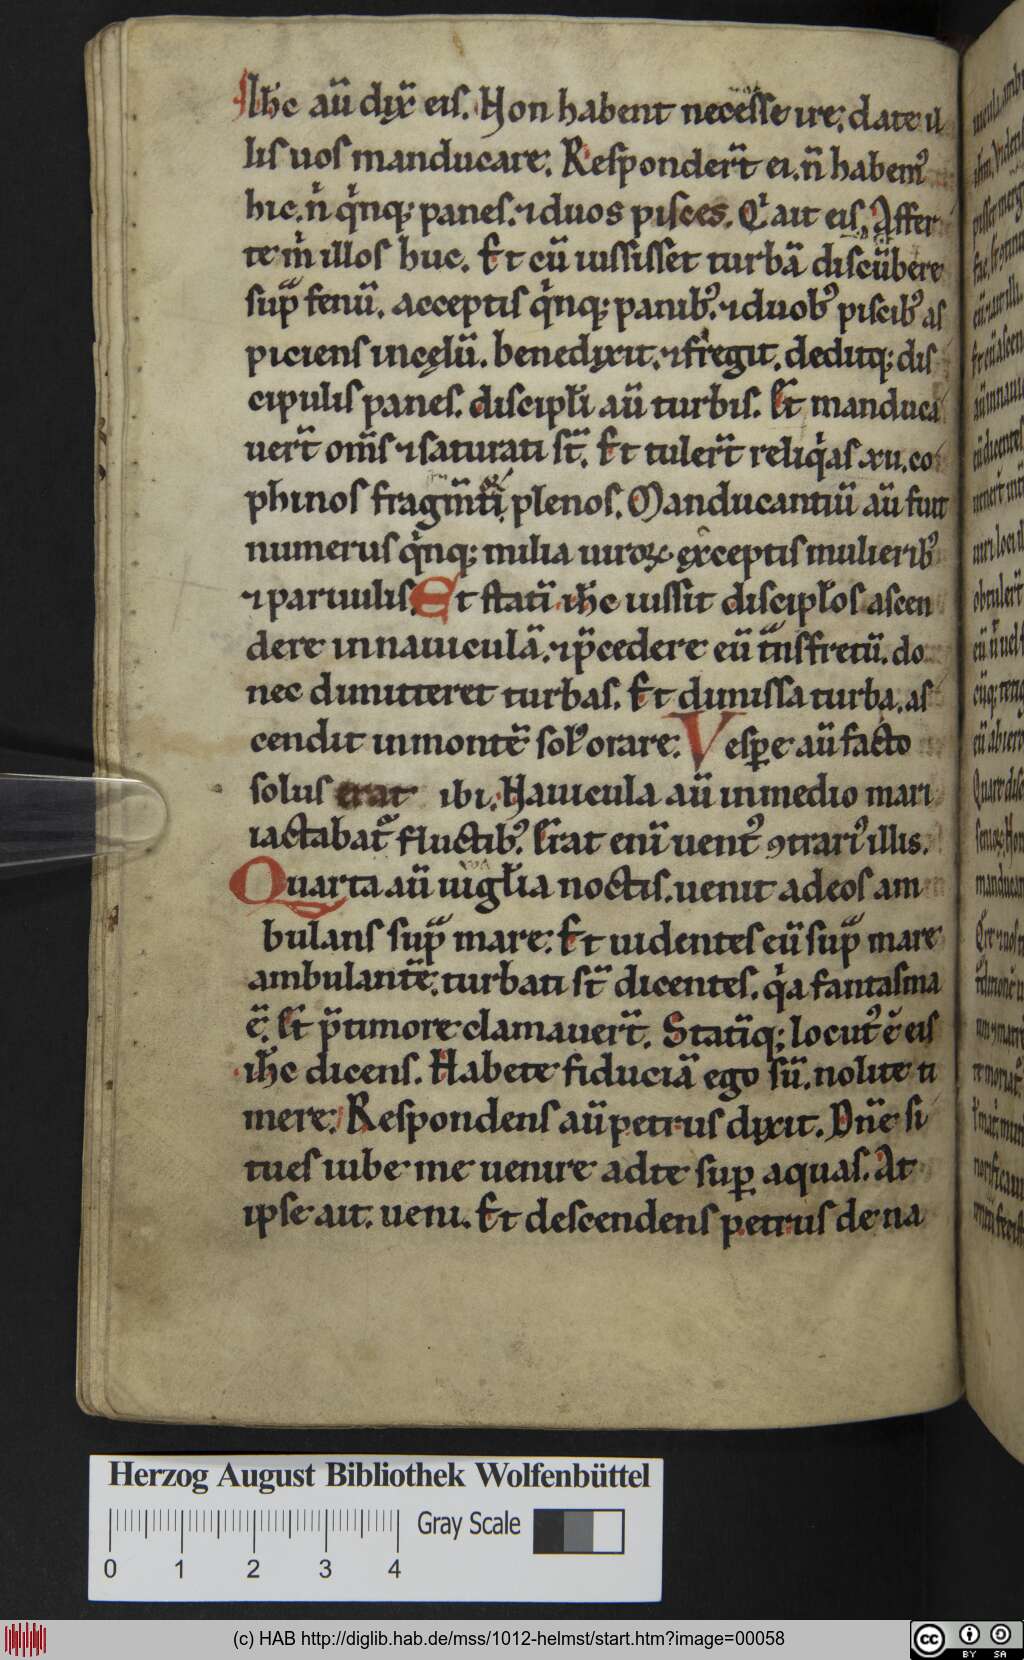 Ihc aū dix̄ eis. Non habent necesse ire. date il
lis uos manducare. Responder̄t ei. n̄ habem᷒
hic. n̄ qͥnq; panes. ⁊ duos pisces. Qͥ ait eis, Affer
te m̄ illos huc. Et cū iussisset turbā discūbere
sup̄ fenū. acceptis qͥnq; panib᷒. ⁊ duob᷒ piscib᷒ as
piciens incęlū. benedixit. ⁊ fregit. deditq; dis
cipulis panes. discipli aū turbis. Et manduca
uer̄t om̄s ⁊ saturati st̄. Et tuler̄t reliqͥas .xii. co
phinos fragm̄ti plenos. Manducantiū aū fuit
numerus qͥnq; milia uiroꝝ. exceptis mulierib᷒
⁊ paruulis. Et stati ihc iussit disciplos ascen
dere in nauiculā. ⁊ p̄cedere eū tnsfretū. do
nec dimitteret turbas. Et dimissa turba. as
cendit in montē sol᷒ orare. Vespe aū facto
solus erat ibi. Nauicula aū in medio mari
iactabat̄ fluctib᷒. Erat eni uent᷒ ꝯtrari᷒ illis.
Quarta aū uiglia noctis. uenit ad eos am
bulans sup̄ mare. Et uidentes eū sup̄ mare
ambulantē. turbati st̄ dicentes. qͥa fantasma
ē. Et p̄ timore clamauer̄t. Statīq; locut᷒ ē eis
ihc dicens. Habete fiduciā ego sū. nolite ti
mere. Respondens aū petrus dixit. Dn̄e si
tu es iube me uenire ad te sup aquas. At
ipse ait. ueni. Et descendens petrus de na
Herzog August Bibliothek Wolfenbüttel
Gray Scale
0 1 2 3 4
(c) HAB http://diglib.hab.de/mss/1012-helmst/start.htm?image=00058
cc BY SA